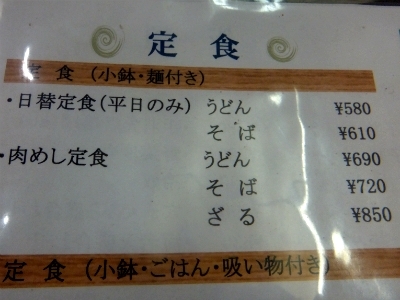 定食
定食(小鉢・麺付き)
・日替定食(平日のみ) うどん ¥580
そば ¥610
・肉めし定食 うどん ¥690
そば ¥720
ざる ¥850
定食(小鉢・ごはん・吸い物付き)